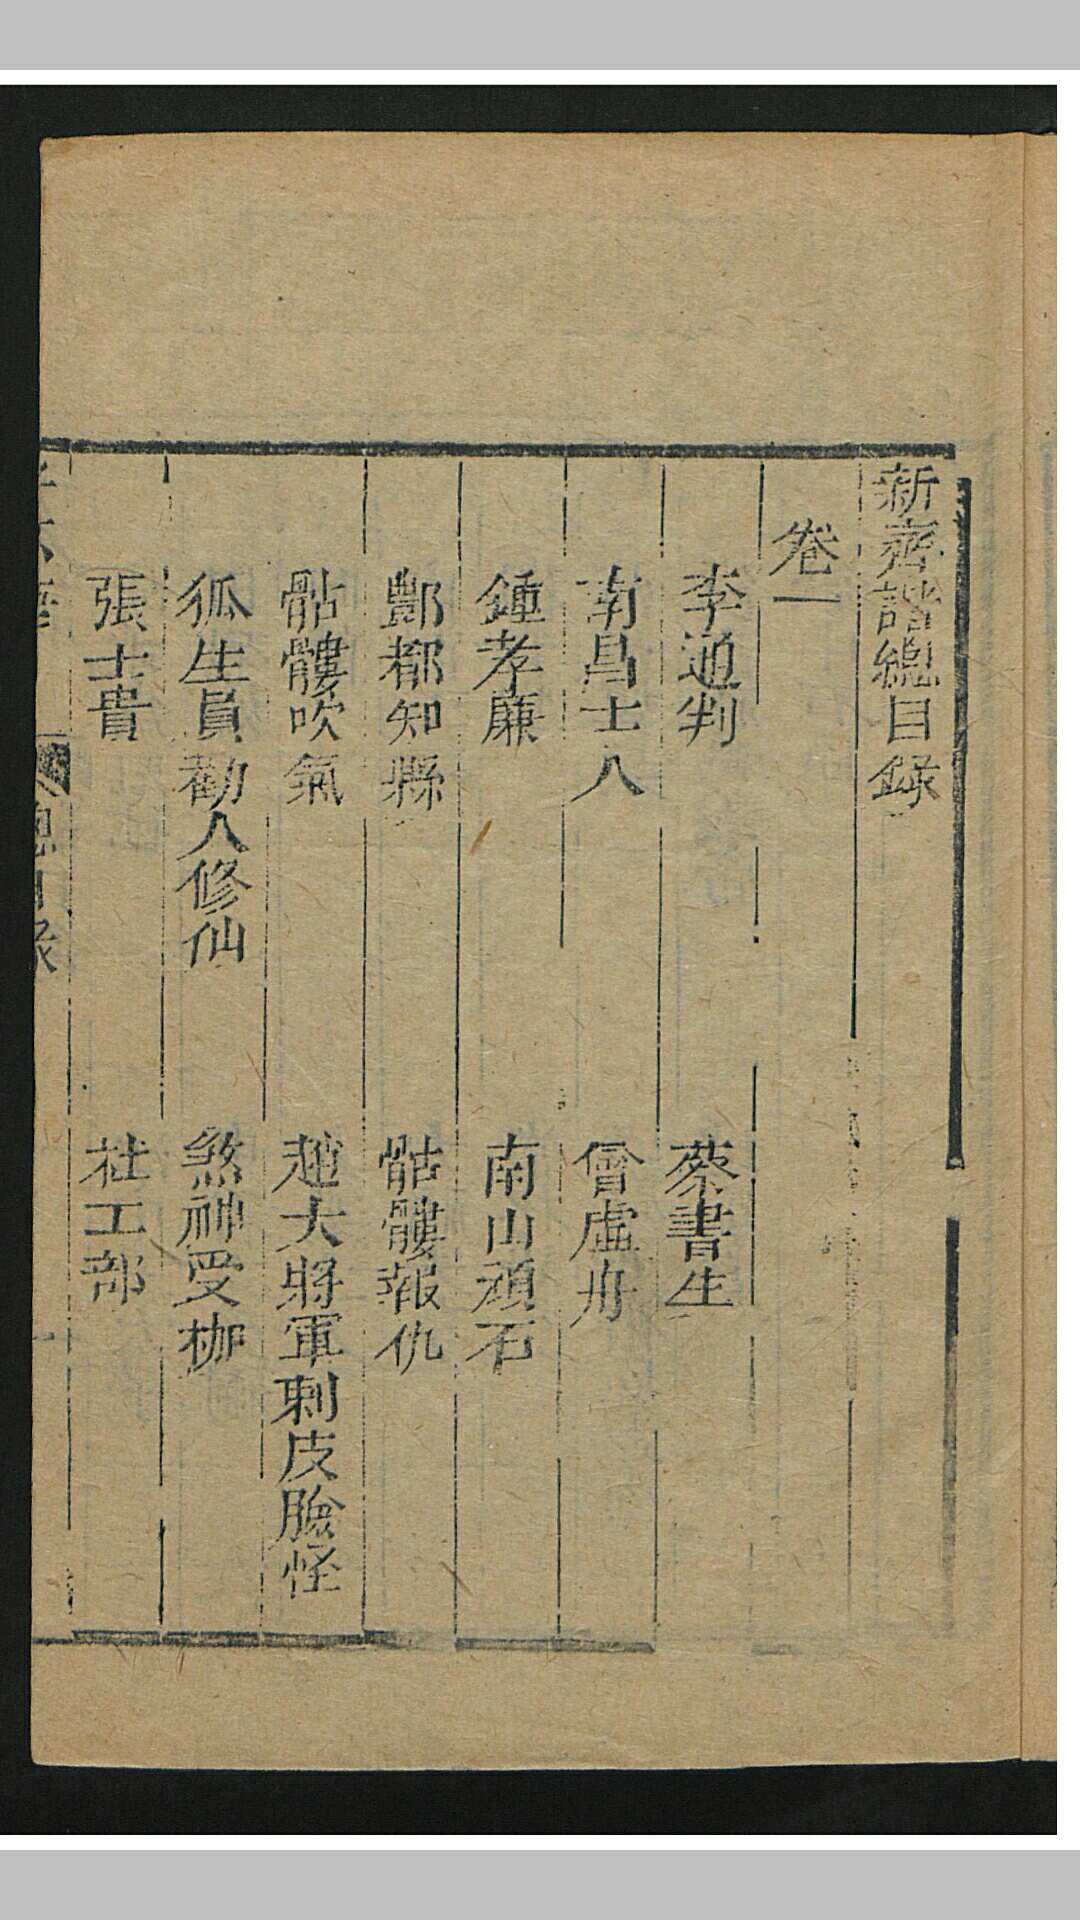 新齊諧總目録
卷一
李通判
蔡書生
南昌士人
曾虛舟
鍾孝廉
南山頑石
酆都知縣
骷髏報仇
骷髏吹氣
趙大將軍刺皮臉怪
狐生員勸人修仙
煞神受枷
張士貴
杜工部
總目録
一